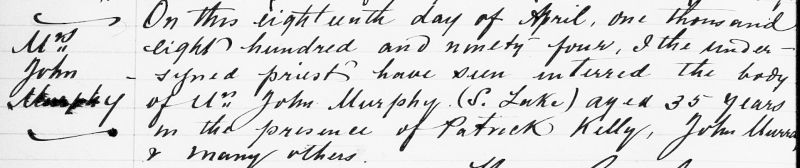 On this eighteenth day of April, one thousand
Mrs eight hundred and ninety four, I the under-
John - syned priest have seen interred the body
Murphy of Mrs John Murphy (S. Lake) aged 35 years
in the presence of Patrick Kelly, John Murra
& many others.